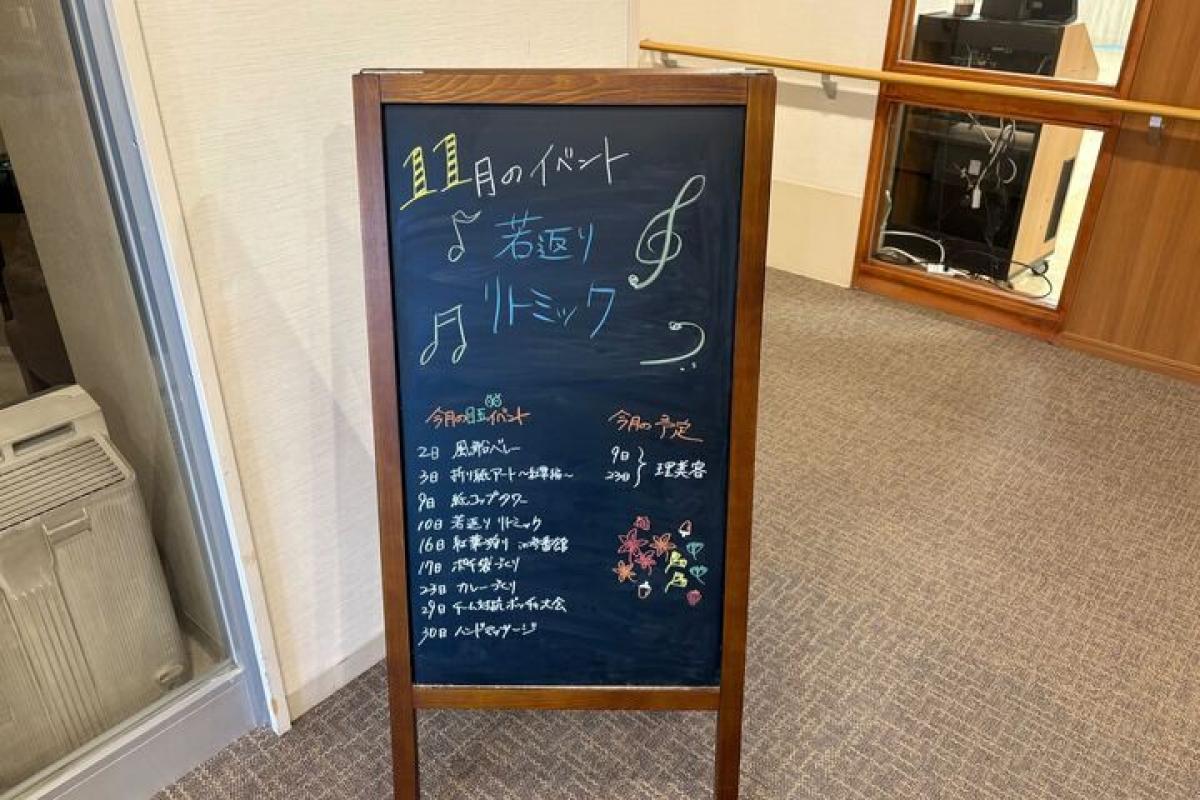 11月のイベント
若返り
リトミック
今月の目玉イベント
2日 風船バレー
3日 折り紙アート〜紅葉編〜
9日 紙コップタワー
10日 若返りリトミック
16日 紅葉狩り in 弐番館
17日 ポチ袋づくり
23日 カレーづくり
29日 チーム対抗ボッチャ大会
30日 ハンドマッサージ
今月の予定
9日
23日
理美容